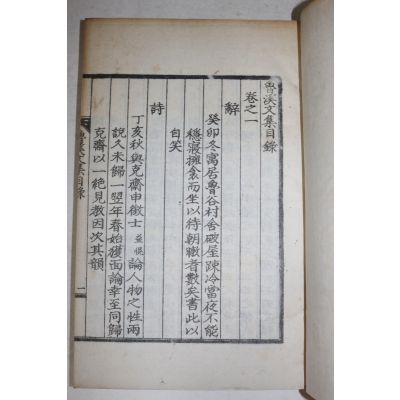 魯溪文集目錄
卷之一
辭
癸卯冬寓居魯谷村舍破屋踈冷當夜不能
穩寢擁衾而坐以待朝暾者數矣書此以
自笑
詩
丁亥秋與克齋申徵士益愰論人物之性兩
說久未歸一翌年春始獲面論幸至同歸
克齋以一絶見教因次其韻
文集目錄
一